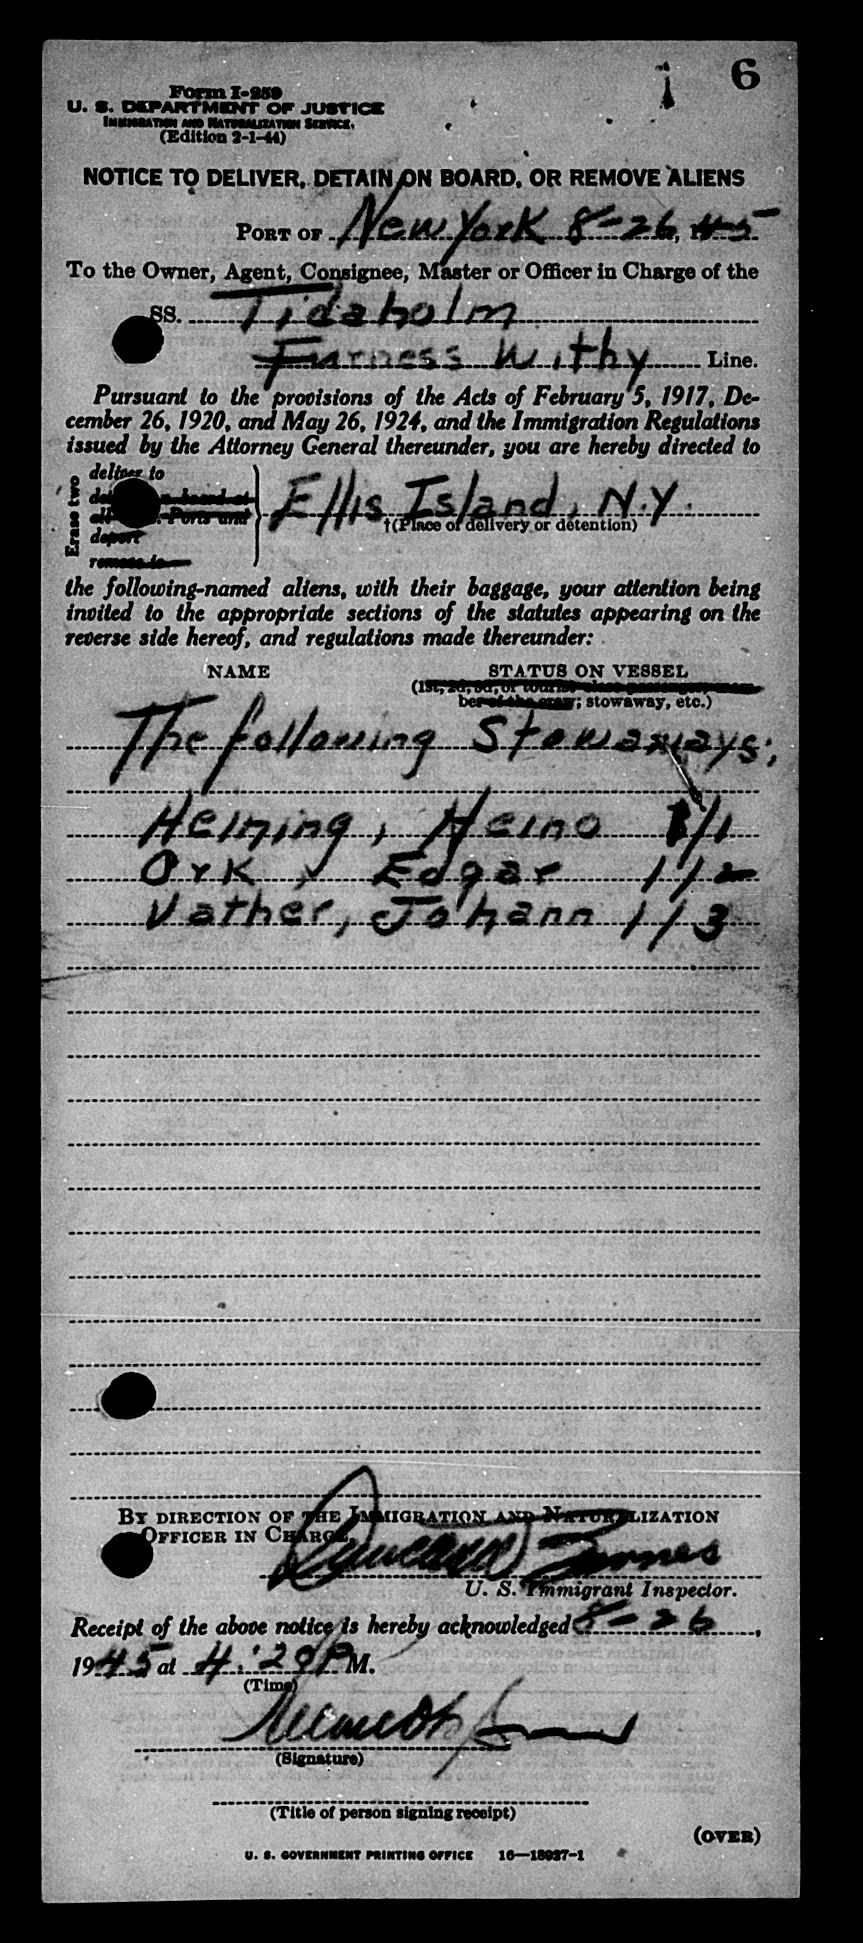 6
Form I-259
U. S. DEPARTMENT OF JUSTICE
IMMIGRATION AND NATURALIZATION SERVICE.
(Edition 2-1-44)
NOTICE TO DELIVER, DETAIN ON BOARD, OR REMOVE ALIENS
PORT OF New York 8-26, 45
To the Owner, Agent, Consignee, Master or Officer in Charge of the
SS. Tidaholm
Furness Withy Line.
Pursuant to the provisions of the Acts of February 5, 1917, De-
cember 26, 1920, and May 26, 1924, and the Immigration Regulations
issued by the Attorney General thereunder, you are hereby directed to
Erase two
deliver to
Ports and
deport
remove to
Ellis Island, N.Y.
†(Place of delivery or detention)
the following-named aliens, with their baggage, your attention being
invited to the appropriate sections of the statutes appearing on the
reverse side hereof, and regulations made thereunder:
NAME STATUS ON VESSEL
(1st, 2d, 3d, or tourist class passenger, mem-
ber of the crew; stowaway, etc.)
The following Stowaways;
Heining, Heino 1/1
Ork, Edgar 1/2
Vather, Johann 1/3
BY DIRECTION OF THE IMMIGRATION AND NATURALIZATION
OFFICER IN CHARGE,
U. S. Immigrant Inspector.
Receipt of the above notice is hereby acknowledged 8-26,
1945 at 4:20 P M.
(Time)
(Signature)
(Title of person signing receipt)
(OVER)
U. S. GOVERNMENT PRINTING OFFICE 16—18927-1